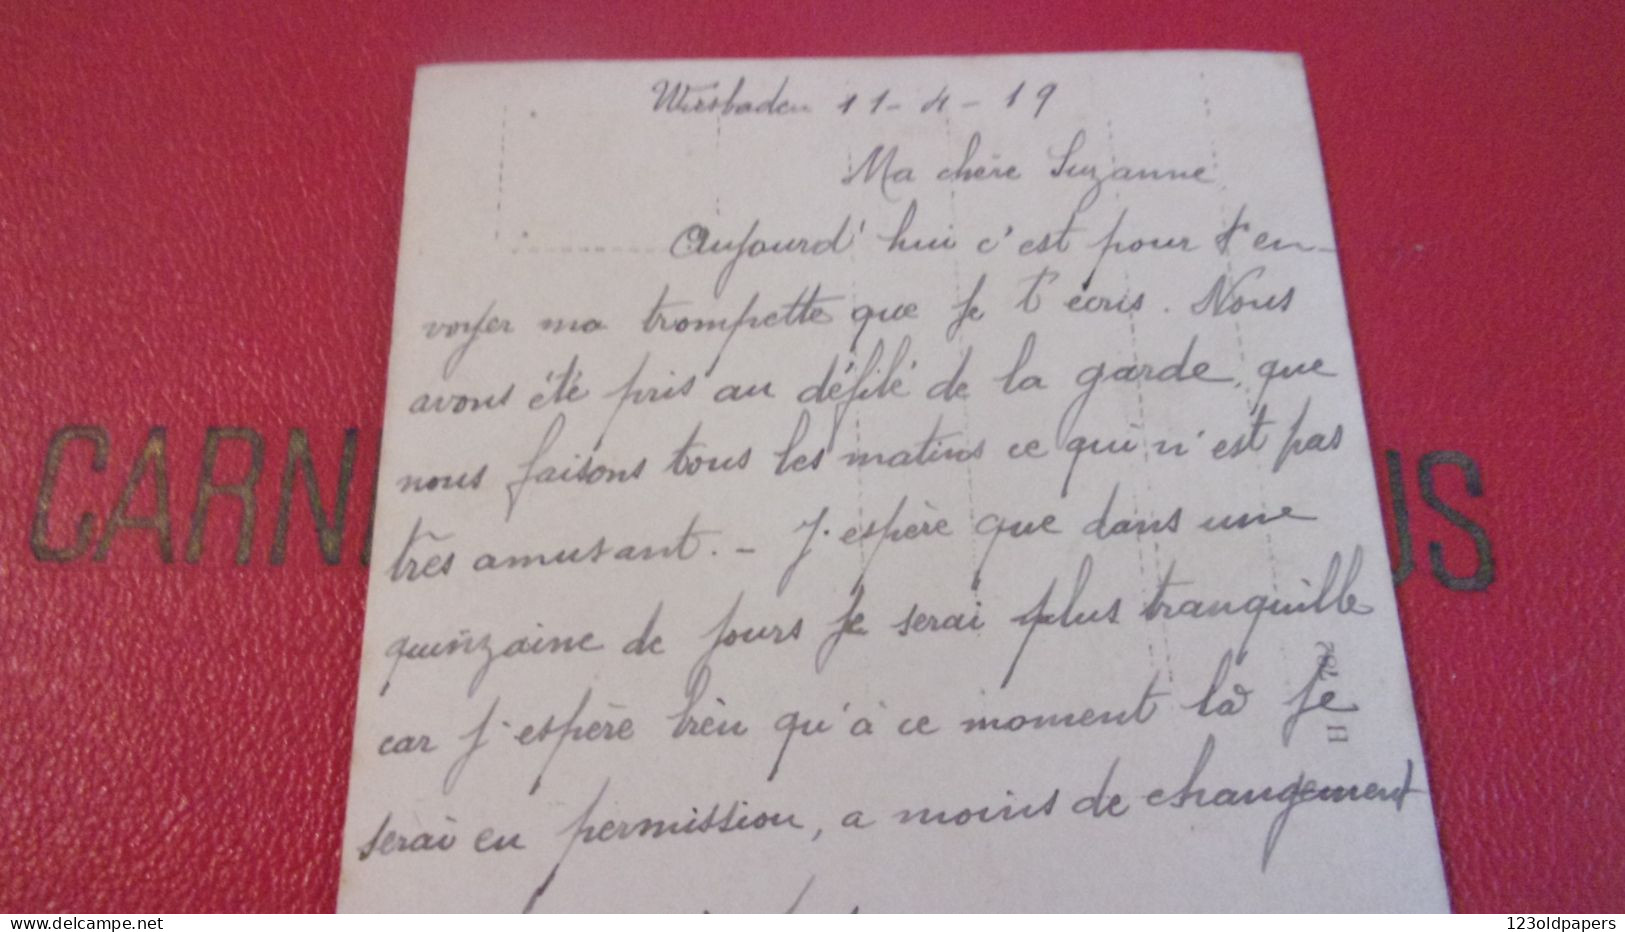 Wiesbaden 11-4-19
Ma chère Suzanne
Aujourd'hui c'est pour t'en-
voyer ma trompette que je t'écris. Nous
avons été pris au défilé de la garde, que
nous faisons tous les matins ce qui n'est pas
très amusant. - J'espère que dans une
quinzaine de jours je serai plus tranquille
car j'espère bien qu'à ce moment là je
serai en permission, a moins de changement
CARN
US
H 782
delcampe.net
123oldpapers